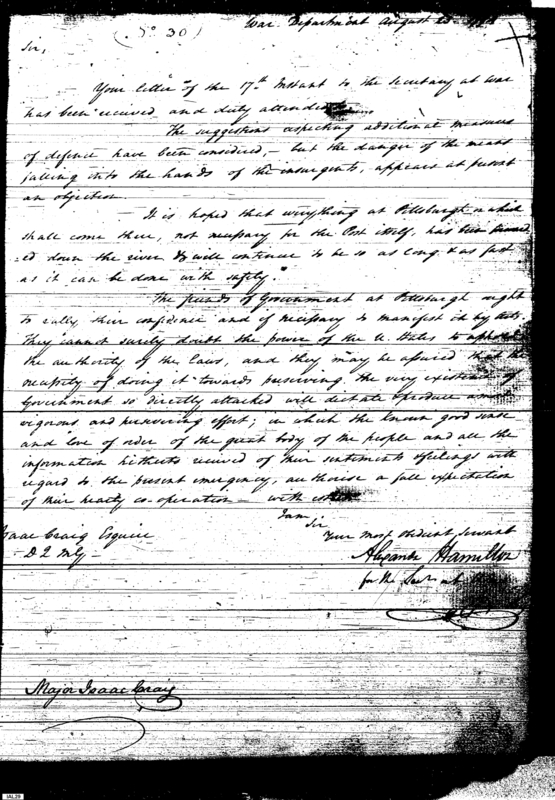 (No 30)
War Department August
Sir,
Your letter of the 17th Instant to the Secretary at War
has been received and duly attended
The suggestions respecting additional measures
of defence have been considered, – but the danger of the means
falling into the hands of the insurgents, appears at present
an objection
It is hoped that every thing at Pittsburgh or which
shall come there, not necessary for the Post itself, has been forward
=ed down the river & will continue to be so as long & as fast
as it can be done with safety.
The friends of Government at Pittsburgh ought
to rally their confidence and if necessary to manifest it by Acts.
They cannot surely doubt the power of the U. States to uphold
the authority of the Laws, and they may be assured that the
necessity of doing it towards preserving the very existence of
Government so directly attacked will dictate & produce a most
vigorous and persevering effort; in which the known good sense
and love of order of the great body of the people and all the
information hitherto received of their sentiments & feelings with
regard to the present emergency, authorise a full expectation
of their hearty co-operation – with
I am
Sir
Your most obedient Servant
Alexander Hamilton
for the Secy at
Isaac Craig Esquire
D Q M G –
Major Isaac Craig
IAL29